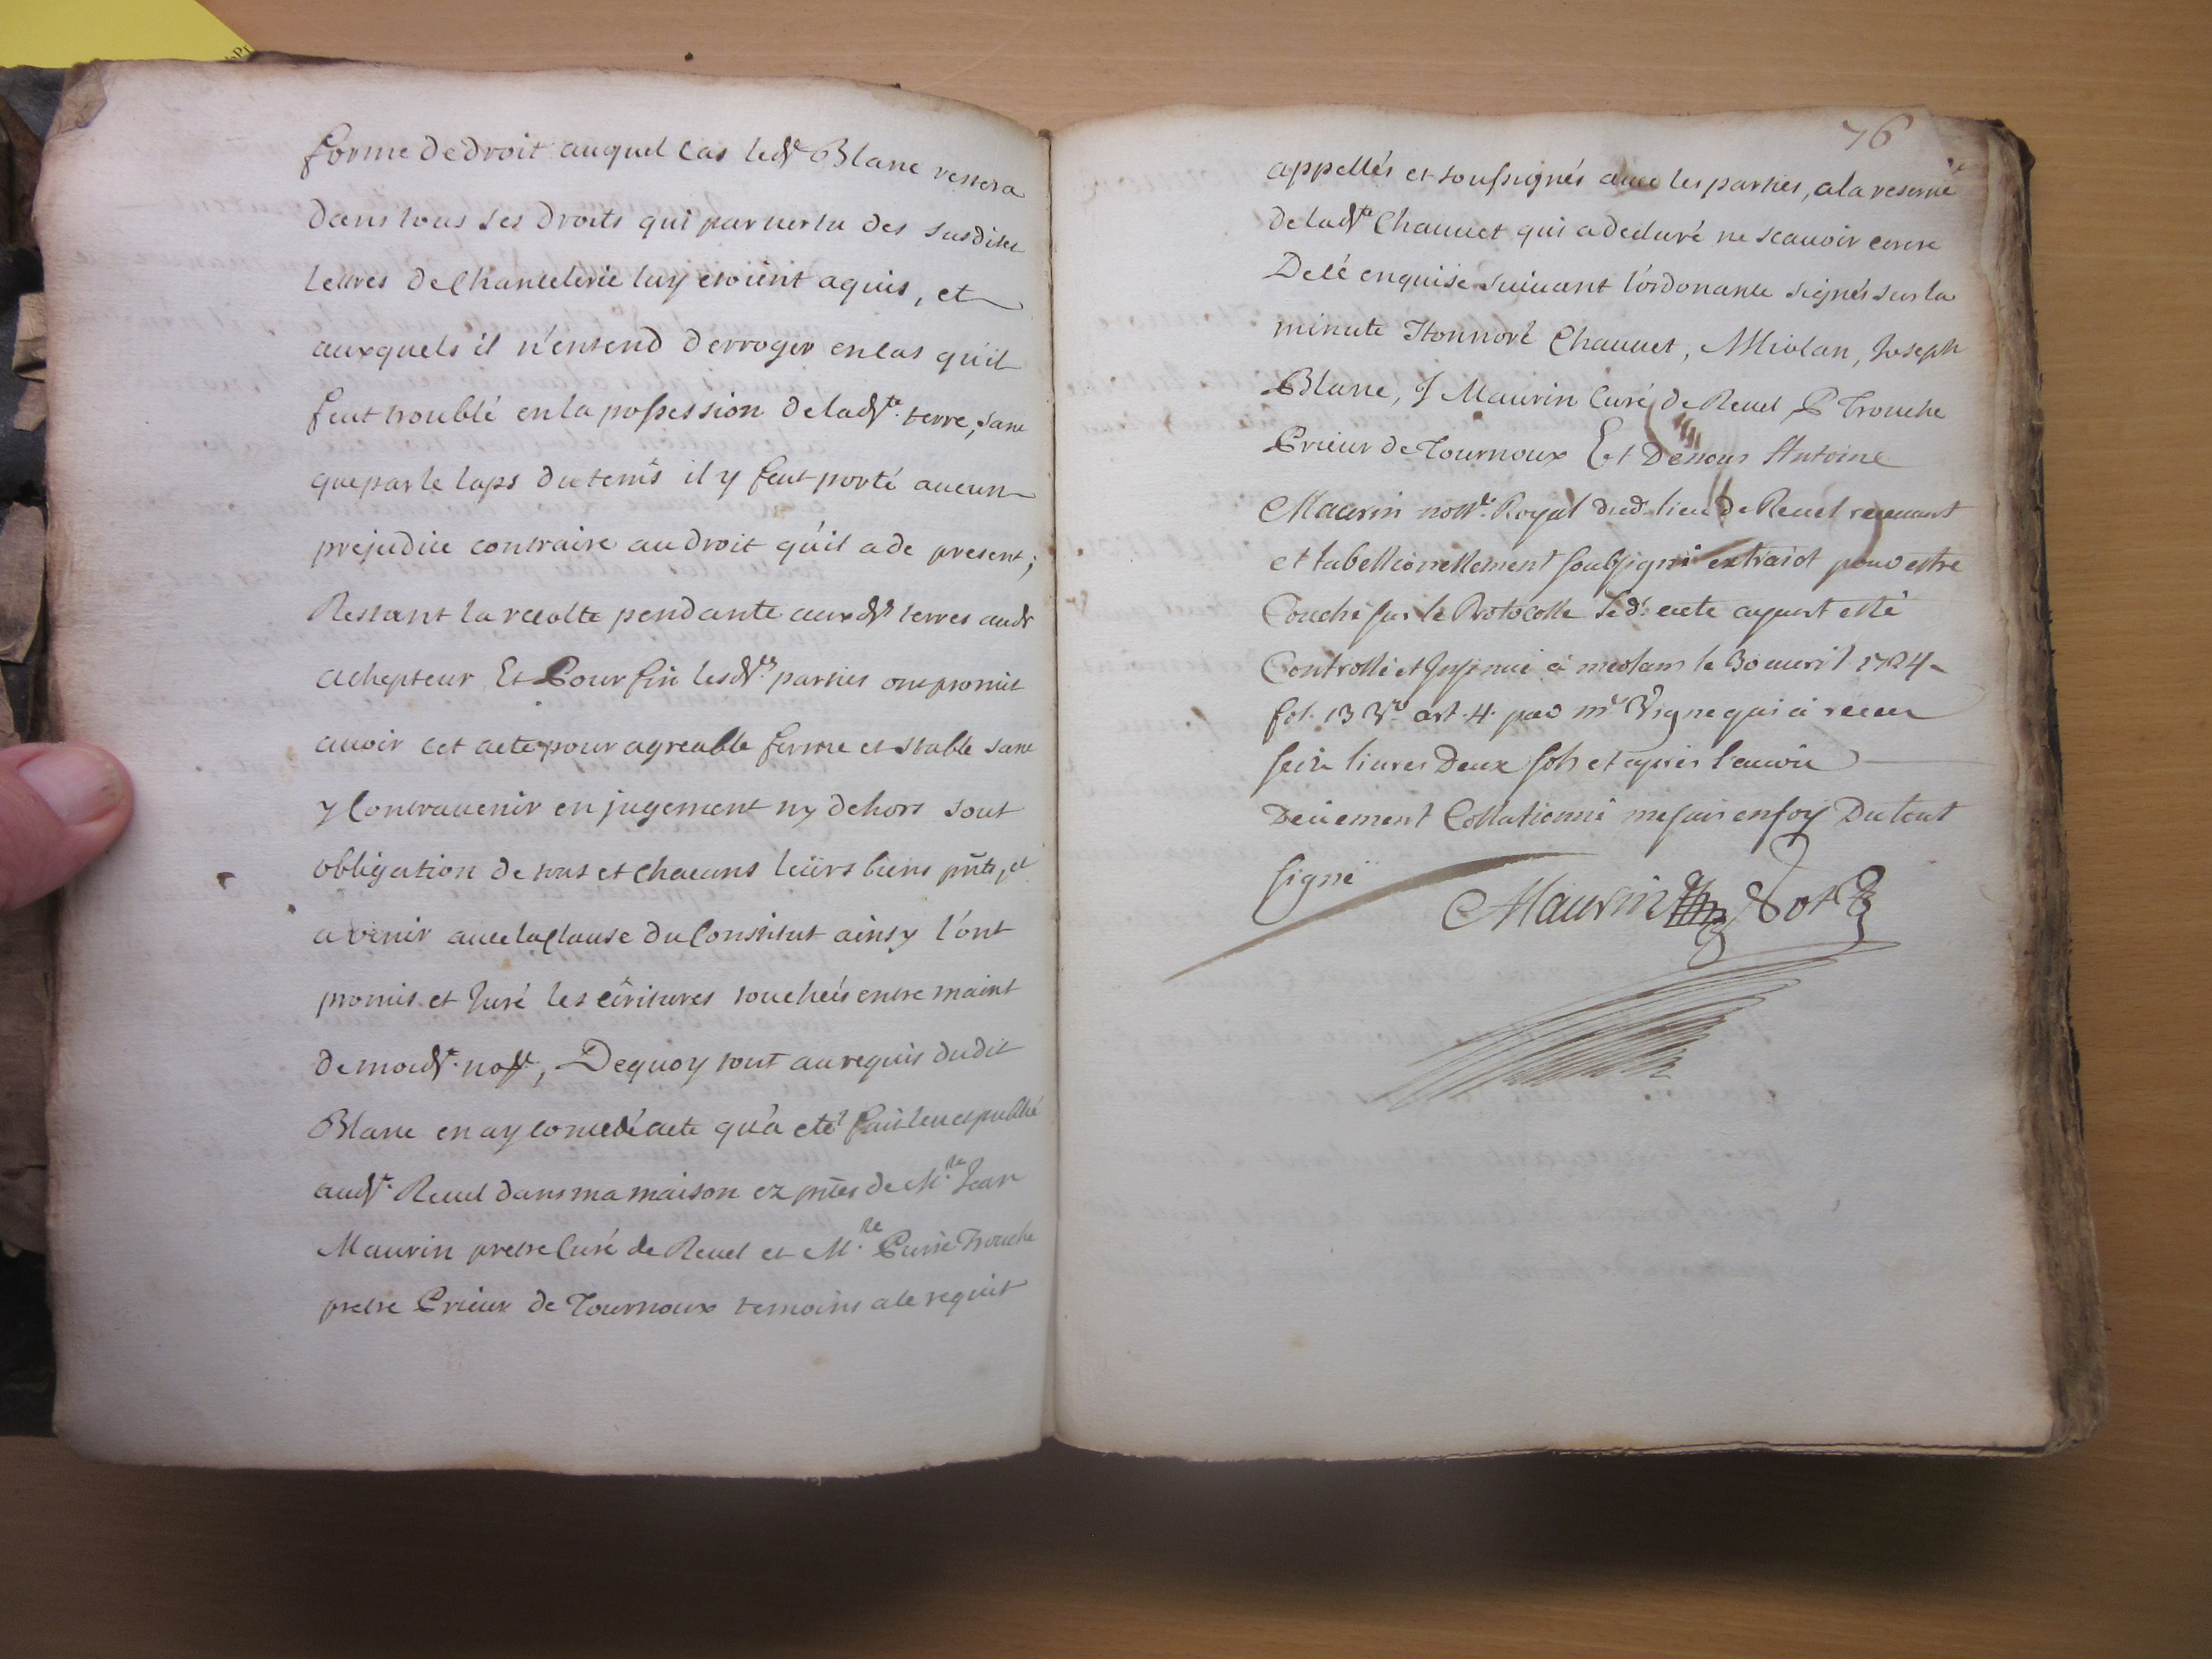 forme de droit auquel cas led.t Blanc restera
dans tous ses droits qui par vertu des susdites
lettres de Chancelerie luy etoient aquis, et
auxquels il n'entend derroger en cas qu'il
feut troublé en la possession de lad.te terre, sans
que par le laps du tems il y feut porté aucun
prejudice contraire au droit qu'il a de present;
Restant la recolte pendante aux d.ts terres aud.t
achepteur Et Pour fin lesd.tes parties ont promit
avoir cet acte pour agreable ferme et stable sans
y Contrauenir en jugement ny dehors sout
obligation de tous et chacuns leurs biens pñts, et
a venir avec la Clause du Constitut ainsy l'ont
promis et Juré les écritures touchéés entre maint
de moid.t no.re, De quoy tout au requis dudit
Blanc en ay concedé acte qu'a eté fait leu et publié
aud.t Revel dans ma maison ez pñtes de M.re Jean
Maurin pretre Curé de Revel et M.re Pierre Trouche
pretre Prieur de Tournoux temoins a ce requit
76
appellés et soussignés avec les parties, a la reserve
de lad.te Chauvet qui a declaré ne scavoir ecrire
De cé enquise suivant l'ordonance signés sur la
minute Honnoré Chauvet, Miolan, Joseph
Blanc, J Maurin Curé de Revel, P Trouche
Prieur de Tournoux Et De nous Antoine
Maurin nott.e Royal dud. lieu de Revel recevant
et tabellionnellement soubsigné extraict pour estre
Couché sur le Protocolle led. acte ayant esté
Controllé et Insinué à meolans le 30 avril 1724
fol. 13 v.o art. 4. par m.e Vigne qui à receu
seize livres Deux sols et aprés l'avoir
Deüement Collationné me suis en foy Du tout
signé
Maurin Not.re